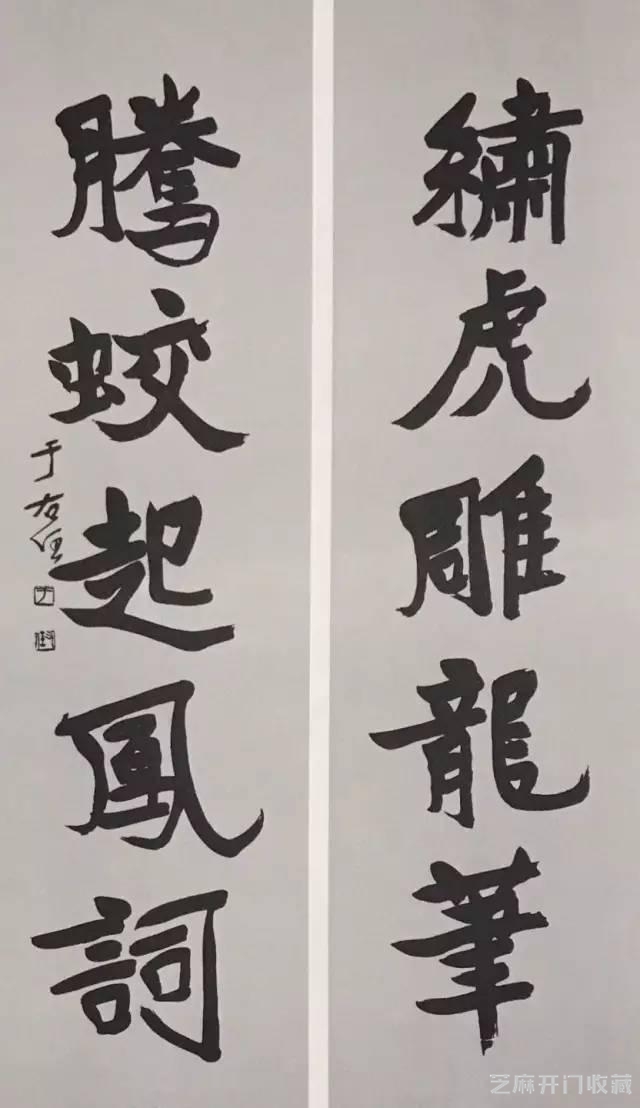 繡虎雕龍筆
騰蛟起鳳詞
于右任
芝麻开门收藏